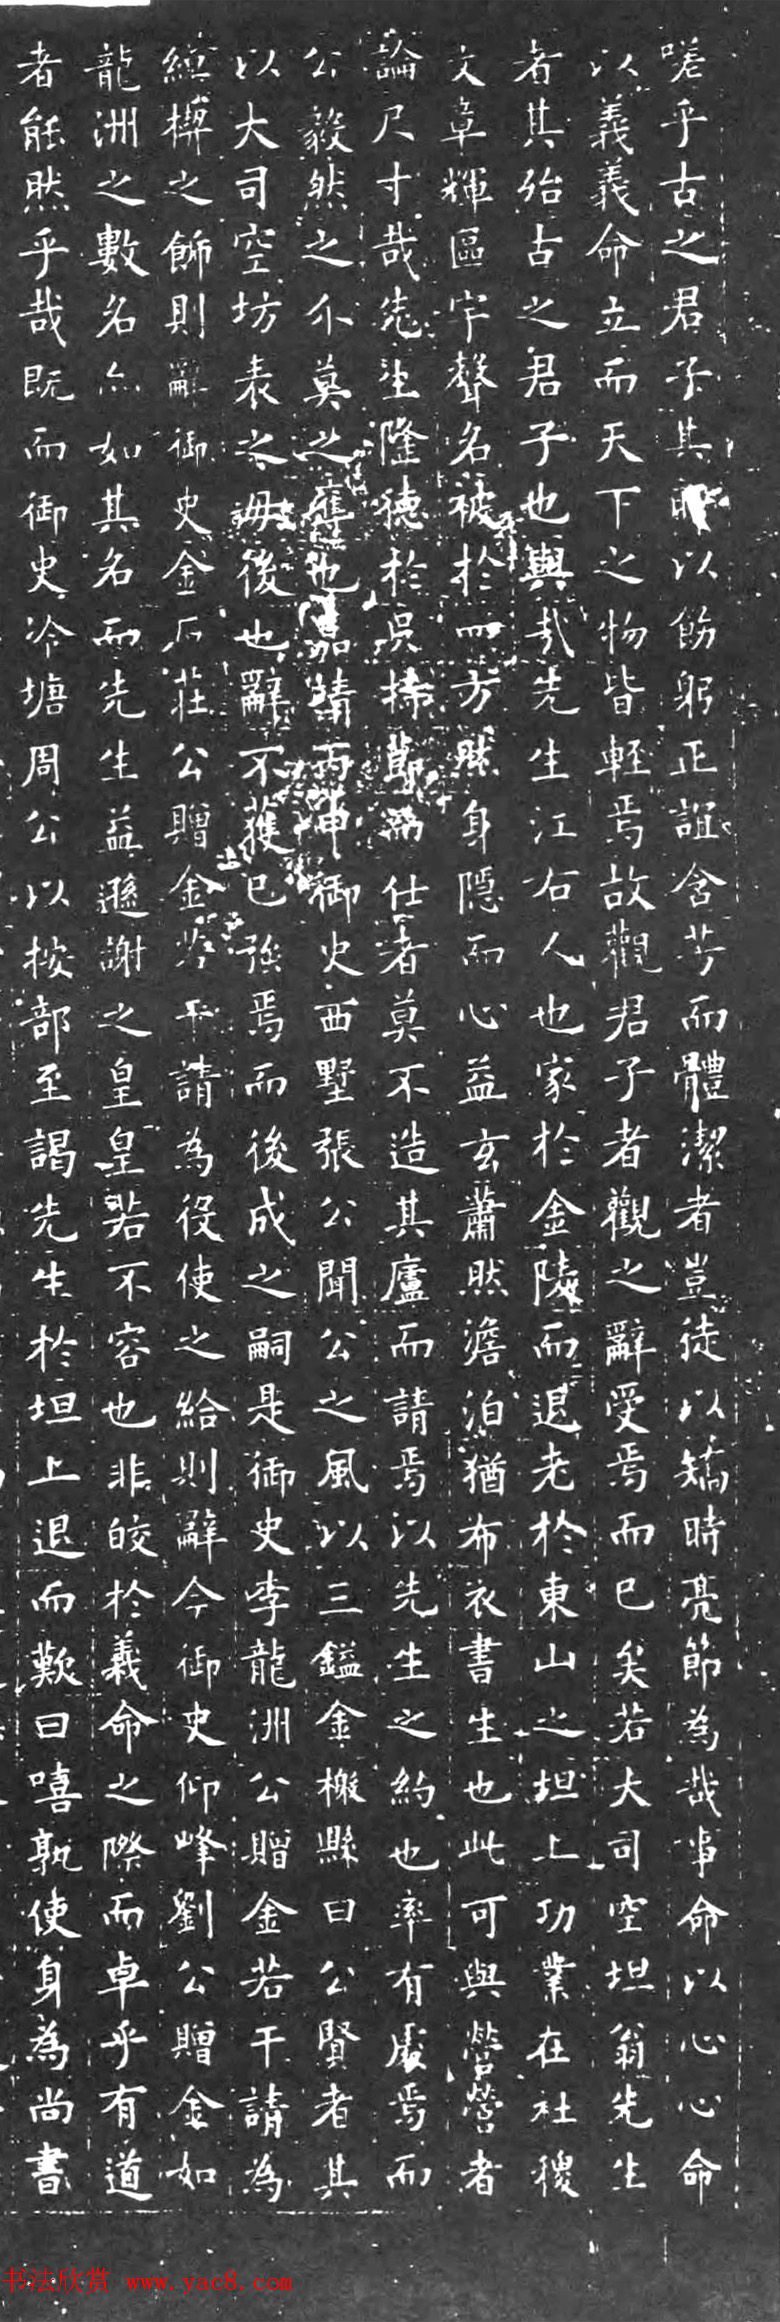 嗟乎古之君子其所以飭躬正誼含芳而體潔者豈徒以矯時亮節為哉事命以心心命
以義義命立而天下之物皆輕焉故觀君子者觀之辭受焉而已矣若大司空坦翁先生
者其殆古之君子也與哉先生江右人也家於金陵而退老於東山之坦上功業在社稷
文章輝區宇聲名被於四方然身隱而心益玄蕭然澹泊猶布衣書生也此可與營營者
論尺寸哉先生隆德於吳持節為仕者莫不造其廬而請焉以先生之約也率有處焉而
公毅然之介莫之奪也嘉靖丙申御史西墅張公聞公之風以三鎰金檄縣曰公賢者其
以大司空坊表之毋後也辭不獲已強焉而後成之嗣是御史李龍洲公贈金若干請為
綽楔之飾則辭御史金石莊公贈金若干請為役使之給則辭今御史仰峰劉公贈金如
龍洲之數名亦如其名而先生益遜謝之皇皇若不容也非皎於義命之際而卓乎有道
者能然乎哉既而御史冷塘周公以按部至謁先生於坦上退而歎曰嘻孰使身為尚書
书法欣赏 www.yac8.com